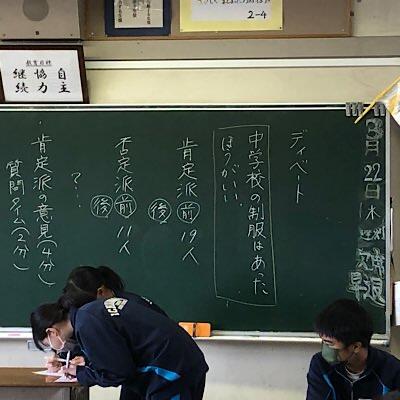 2-4
教育目標
自主
協力
継続
ディベート
中学校の制服はあった
ほうがいい。
肯定派 前 19人
後
否定派 前 11人
後
?…
・肯定派の意見(4分)
質問タイム(2分)
3月22日(木)
早退